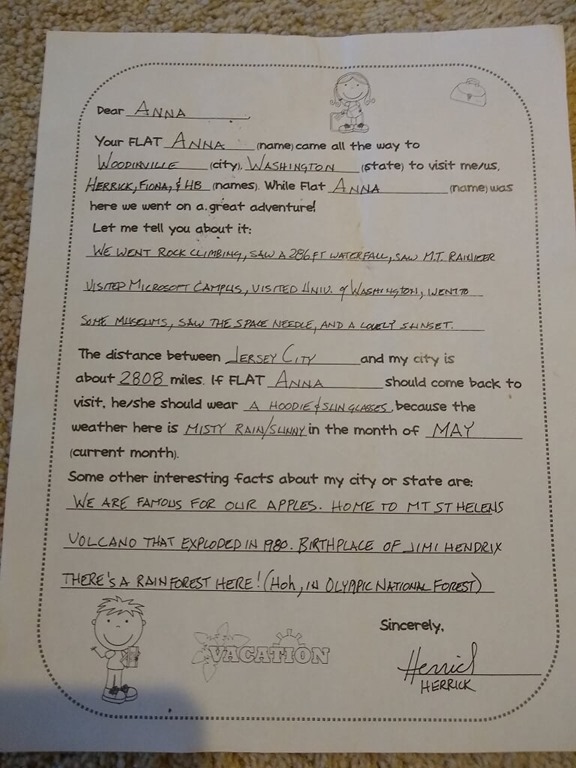 Dear ANNA
Your FLAT ANNA (name) came all the way to
WOODINVILLE (city), WASHINGTON (state) to visit me/us,
HERRICK, FIONA, & HB (names). While Flat ANNA (name) was
here we went on a great adventure!
Let me tell you about it:
WE WENT ROCK CLIMBING, SAW A 286 FT WATERFALL, SAW M.T. RAINIEER
VISITED MICROSOFT CAMPUS, VISITED UNIV. of WASHINGTON, WENT TO
SOME MUSEUMS, SAW THE SPACE NEEDLE, AND A LOVELY SUNSET.
The distance between JERSEY CITY and my city is
about 2808 miles. If FLAT ANNA should come back to
visit, he/she should wear A HOODIE & SUNGLASSES, because the
weather here is MISTY RAIN/SUNNY in the month of MAY
(current month).
Some other interesting facts about my city or state are:
WE ARE FAMOUS FOR OUR APPLES. HOME TO MT ST HELENS
VOLCANO THAT EXPLODED IN 1980. BIRTHPLACE OF JIMI HENDRIX
THERE'S A RAINFOREST HERE! (Hoh, IN OLYMPIC NATIONAL FOREST)
Sincerely,
VACATION
Herrick
HERRICK